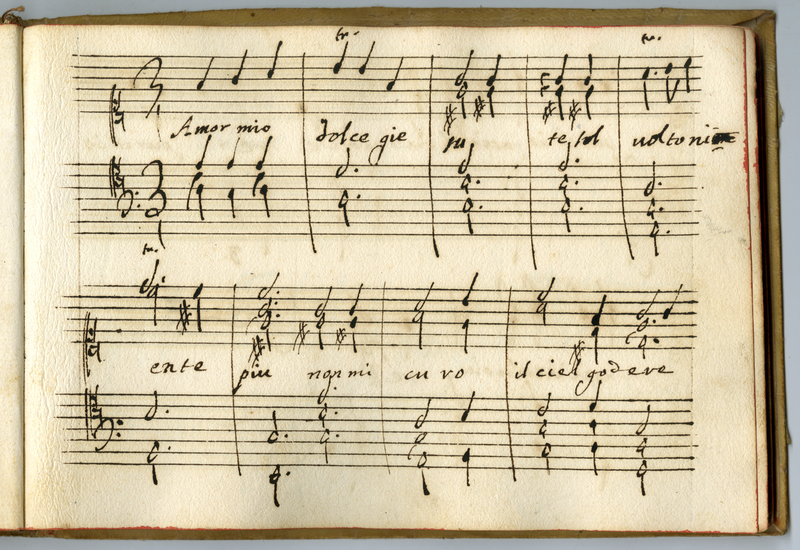 tr. tr.
Amor mio dolce gie su te sol volto ni
tr.
ente piu non mi cu ro il ciel godere